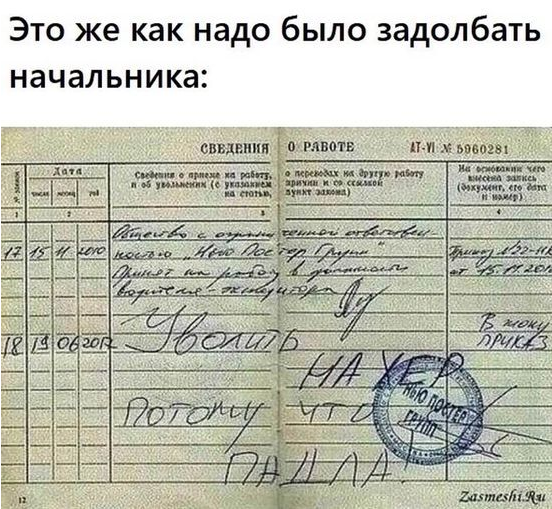 Это же как надо было задолбать
начальника:
СВЕДЕНИЯ О РАБОТЕ АТ-VI № 5960281
№ записи
Дата
число месяц год
Сведения о приеме на работу, о переводах на другую работу
и об увольнении (с указанием причин и со ссылкой
на статью, пункт закона)
На основании чего
внесена запись
(документ, его дата
и номер)
1 2 3 4
Общество с ограниченной ответствен-
17 15 11 2010 ностью "Нью Постер Групп" Приказ №22-НК
Принят на работу в должности от 15.11.201
водителя-экспедитора
18 19 06 201 Уволить
В топку
ПРИКАЗ
НАХЕР
Потому что
ПАДЛА.
НЬЮ ПОСТЕР
ГРУПП
12
Zasmeshi.Ru